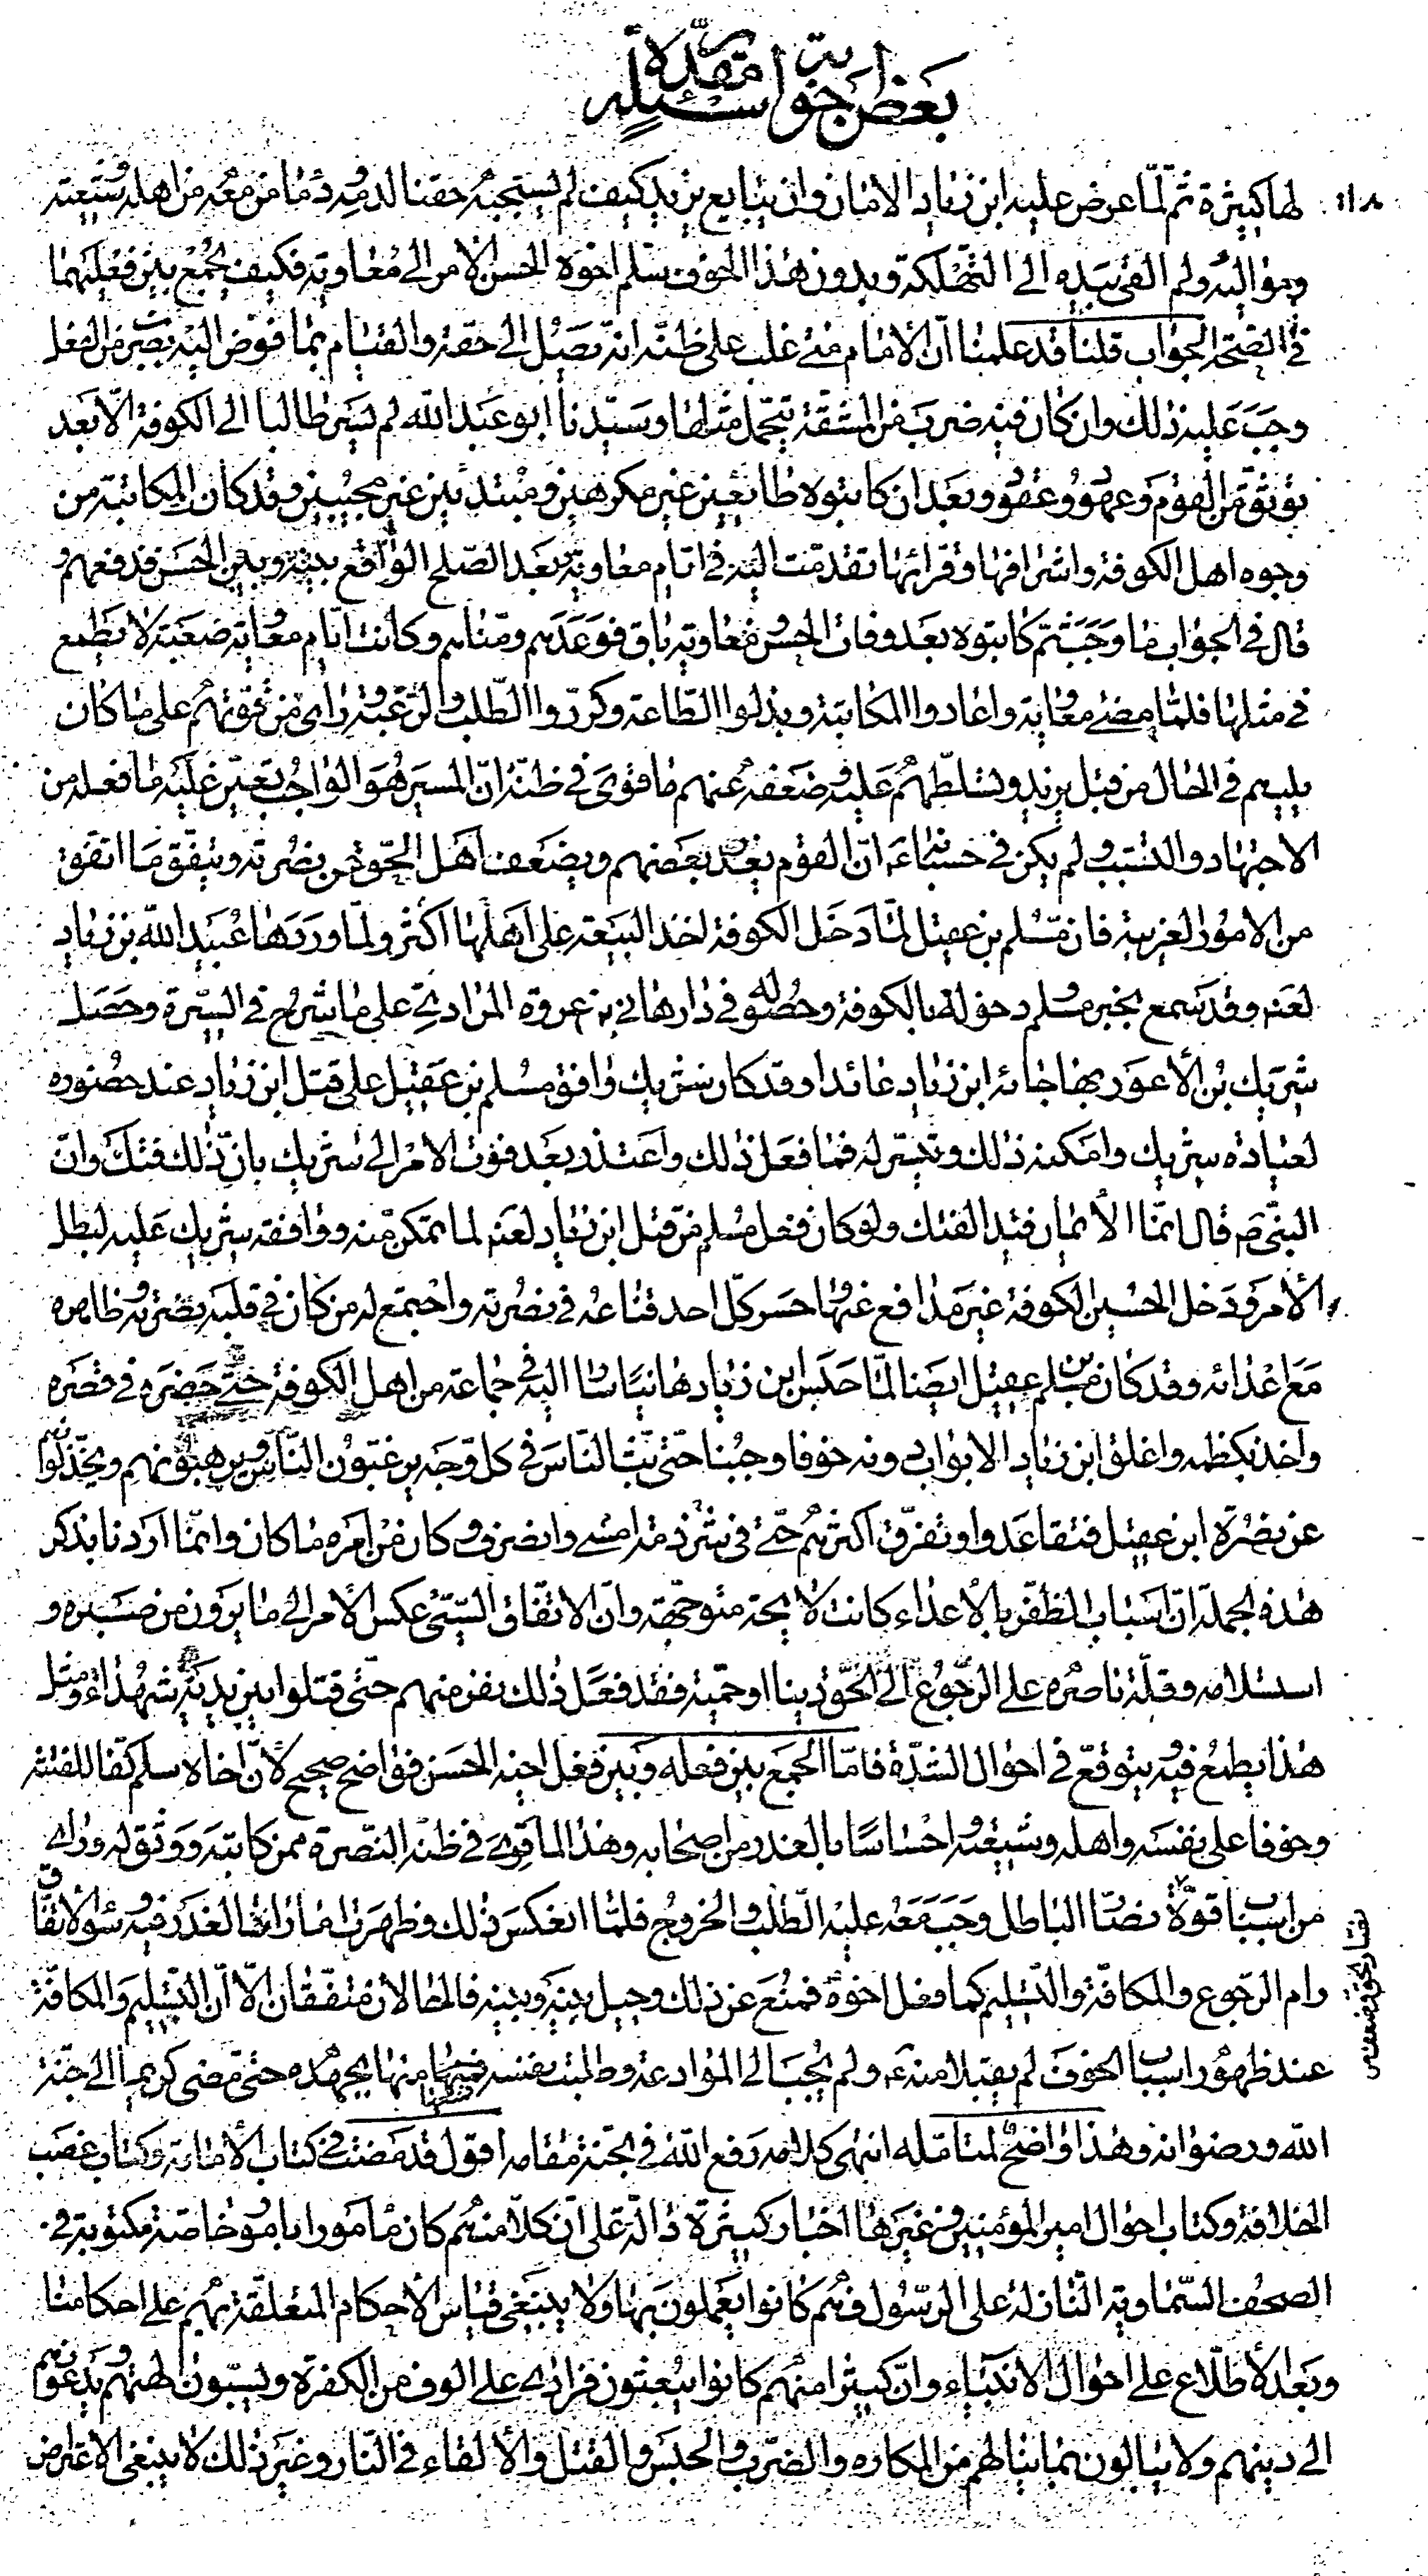 بعض اجوبة اسئلة مقدرة
١١٨
لها كثيرة ثم لمّا عرض عليه ابن زياد الامان وان يبايع يزيد كيف لم يستجبه حقنا لدمه و دماء من معه من اهله و شيعته
و مواليه و لم القى بيده الى التهلكة و بدون هذا الخوف سلّم اخوه الحسن الأمر الى معاوية فكيف يجمع بين فعليهما
في الصحّة الجواب قلنا قد علمنا انّ الأمام متى غلب على ظنّه انّه يصل الى حقّه و القيام بما فوّض اليه بضرب من الفعل
وجب عليه ذلك و ان كان فيه ضرب من المشقّة يتحمّل مثلها و سيّدنا ابو عبد الله لم يسر طالبا الى الكوفة الّا بعد
توثّق من القوم و عهود و عقود و بعد ان كاتبوه طائعين غير مكرهين و مبتدئين غير مجيبين و قد كان المكاتبة من
وجوه اهل الكوفة و اشرافها و قرائها تقدّمت اليه في ايّام معاوية و بعد الصّلح الواقع بينه و بين الحسن فدفعهم و
قال في الجواب ما وجب ثمّ كاتبوه بعد وفات الحسن و معاوية باق فوعدهم و منّاهم و كانت ايّام معاوية صعبة لا يطمع
في مثلها فلمّا مضى معاوية و اعادوا المكاتبة و بذلوا الطّاعة و كرّروا الطّلب و الرّغبة و راى من قوّتهم على ما كان
يليهم في الحال من قبل يزيد و تسلّطهم عليه و ضعفه عنهم ما قوى في ظنّه انّ المسير هو الواجب تعيّن عليه ما فعله من
الاجتهاد و التسبب و لم يكن في حسبانه ع انّ القوم يغدر بعضهم و يضعف اهل الحقّ عن نصرته و يتفق ما اتفق
من الامور الغريبة فان مسلم بن عقيل لمّا دخل الكوفة اخذ البيعة على اكثر اهلها و لمّا وردها عبيد الله بن زياد
لعنه و قد سمع بخبر مسلم و دخوله الكوفة و حصوله في دار هاني بن عروة المرادي على ما شرح في السيرة و حصل
شريك بن الأعور بها جائه ابن زياد عائدا و قد كان شريك وافق مسلم بن عقيل على قتل ابن زياد عند حضوره
لعيادة شريك و امكنه ذلك و تيسّر له فما فعل ذلك و اعتذر بعد فوت الامر الى شريك بان ذلك فتك و انّ
النبي ص قال انّما الأيمان قيد الفتك و لو كان فعل مسلم من قتل ابن زياد لعنه لما تمكن منه و وافقه شريك عليه لبطل
الأمر و دخل الحسين الكوفة غير مدافع عنها و حسر كلّ احد قناعه في نصرته و اجتمع له من كان في قلبه نصرته و ظاهره
مع اعدائه و قد كان مسلم بن عقيل ايضا لمّا حبس ابن زياد هانيا سار اليه في جماعة من اهل الكوفة حتى حصره في قصره
و اخذ بكظمه و اغلق ابن زياد الابواب دونه خوفا و جبنا حتّى بثّ النّاس في كل وجه يرغّبون النّاس و يرهّبونهم و يخذّلونهم
عن نصرة ابن عقيل فتقاعدوا و تفرّق اكثرهم حتى في شرذمة امسى و انصرف و كان من امره ما كان و انّما اردنا بذكر
هذه الجملة انّ اسباب الظّفر بالأعداء كانت لائحة متوجّهة و ان الاتّفاق السيّئ عكس الأمر الى ما يرون من صبره و
استسلامه و قلّة ناصره على الرّجوع الى الحقّ دينا او حميّة فقد فعل ذلك نفر منهم حتّى قتلوا بين يديه شهداء و مثل
هذا يطمع فيه و يتوقّع في احوال الشدّة فامّا الجمع بين فعله و بين فعل اخيه الحسن فواضح صحيح لأنّ اخاه سلّم كفّا للفتنة
و خوفا على نفسه و اهله و شيعته و احساسا بالغدر من اصحابه و هذا لما قوى في ظنّه النّصرة ممّن كاتبه و وثق له و راى
من اسباب قوّة نصّار الحق و ضعف نصّار الباطل ما وجب معه عليه الطّلب و الخروج فلمّا انعكس ذلك و ظهرت امارات الغدر فيه و سوء الاتّفاق
رام الرّجوع و المكافّة و التسليم كما فعل اخوه فمنع عن ذلك و حيل بينه و بينه فالحالان متّفقان الّا انّ التسليم و المكافّة
عند ظهور اسباب الخوف لم يقبلا منه ع و لم يجب الى الموادعة و طلبت نفسه فمنع منها بجهده حتى مضى كريما الى جنّة
الله و رضوانه و هذا واضح لمتأمّله انتهى كلامه رفع الله في الجنّة مقامه اقول قد مضت في كتاب الأمامة و كتاب غصب
الخلافة و كتاب احوال امير المؤمنين و غيرها اخبار كثيرة دالّة على انّ كلّا منهم كان مأمورا بامور خاصّة مكتوبة في
الصحف السّماوية النّازلة على الرّسول فهم كانوا يعملون بها و لا ينبغي قياس الأحكام المتعلّقة بهم على احكامنا
و بعد الأطّلاع على احوال الأنبياء و انّ كثيرا منهم كانوا يبعثون فرادى على الوف من الكفرة و يسبّون الهتهم و يدعونهم
الى دينهم و لا يبالون بما ينالهم من المكاره و الضرب و الحبس و القتل و الألقاء في النّار و غير ذلك لا ينبغي الاعتراض